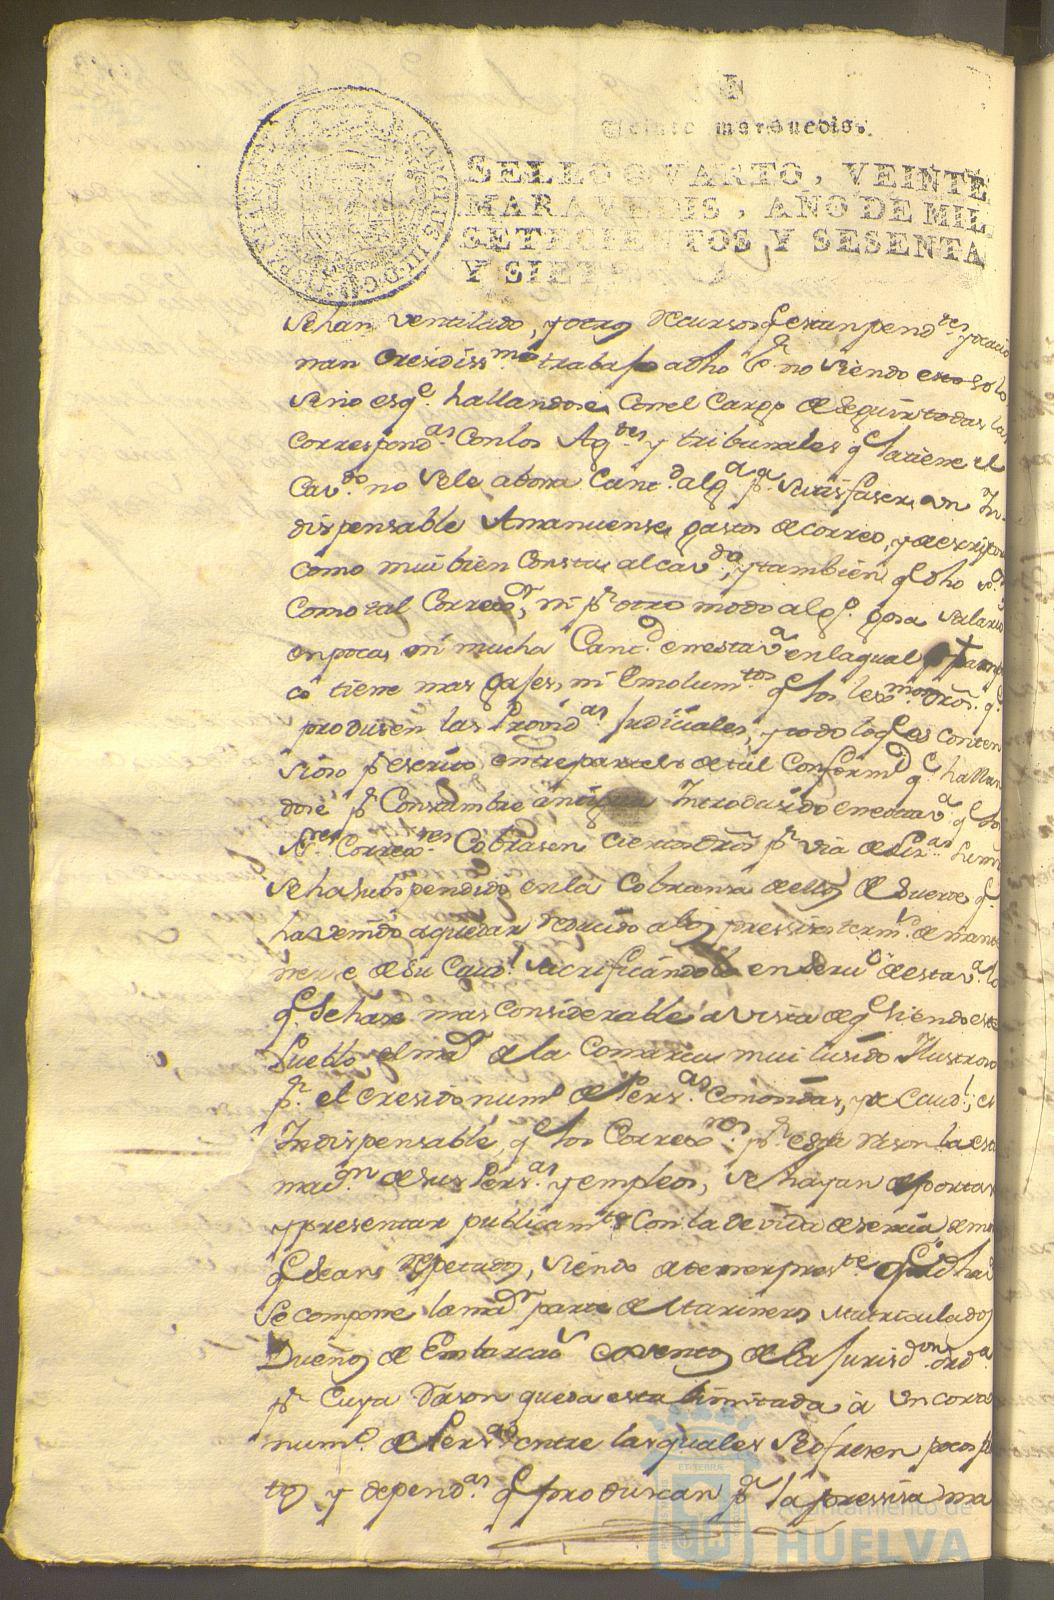 Veinte maravedis.
SELLO QVARTO, VEINTE
MARAVEDIS, AÑO DE MIL
SETECIENTOS Y SESENTA
Y SIETE
CAROLUS III D G HISPANIAR
se han ventilado, y otros recursos q estan pend.tes y ocacio
nan cresidiss.mo trabajo a dho no siendo esto solo
sino es q.e hallandose con el cargo de seguir todas las
correspond.as con los Ag.tes y tribunales q tiene el
Cav.do no se le abona Cant.d alg.a p.a satisfaser un In
dispensable Amanuense, gastos de correo, y de escriptorio
como mui bien consta al cav.do, y tambien q dho s.or
como tal Correx.or, ni p.r otro modo alg.o gosa salario
en poca, ni mucha Cant.d en esta v.a en la qual tampo
co tiene mas gages, ni emolum.tos q los dros. q.e
produsen las Provid.as Judiciales, y todo lo q es conten
sioso p.r escrito entre partes de tal conform.d q.e hallan
dose p.r Constumbre antigua Introdusido en esta v.a q los
S.res Correx.res Cobrasen ciertos dros p.r via de
se ha suspendido en la cobransa de ellos de suerte q.
ha venido a quedar redusido a los presisos term.s de mante
nerse de su Caud.l sacrificandolo en serv.o de esta v.a lo
q se hase mas considerable a vista de q siendo este
Pueblo, el ma.r de la comarca mui lusido Ilustroso
p.r el cresido num.o de Pers.as conosidas, y de Caud.l, es
Indispensable, q los Correx.res p.r esta rason la esti
mas.on de sus Pers.as y empleos, se hayan de portar
y presentar publicam.te con la devida desencia, de modo
q sean respetados, siendo de tener pres.te q
se compone la ma.r parte de Marineros Matriculados
Dueños de Embarcas.s exventos de la Jurisd.on ord.a
p.r cuya rason queda esta limitada a un corto
num.o de Pers.as entre las quales se ofresen pocos plei
tos y depend.as q produscan p.r la presisa ma
Ayuntamiento de
HUELVA